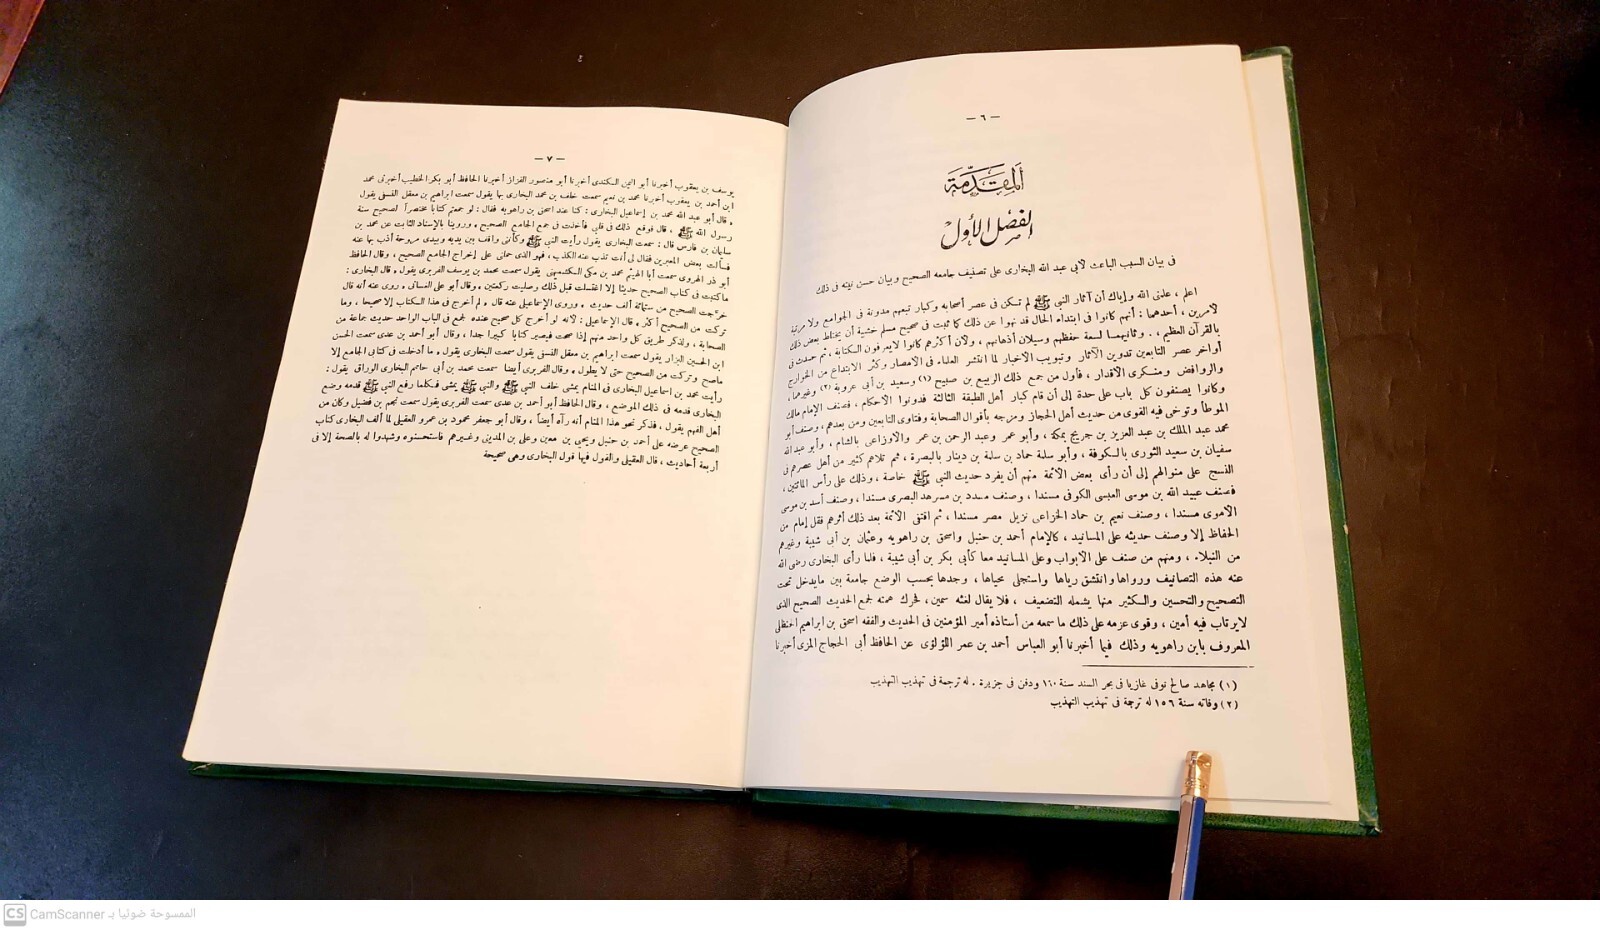 — ٦ —
المقدّمة
الفصل الأول
فى بيان السبب الباعث لأبى عبد الله البخارى على تصنيف جامعه الصحيح وبيان حسن نيته فى ذلك
اعلم ، علمنى الله وإياك أن آثار النبى ﷺ لم تكن فى عصر أصحابه وكبار تبعهم مدونة فى الجوامع ولا مرتبة
لأمرين ، أحدهما : أنهم كانوا فى ابتداء الحال قد نهوا عن ذلك كما ثبت فى صحيح مسلم خشية أن يختلط بعض ذلك
بالقرآن العظيم ، . وثانيهما لسعة حفظهم وسيلان أذهانهم ، ولأن أكثرهم كانوا لا يعرفون الكتابة ، ثم حدث فى
أواخر عصر التابعين تدوين الآثار وتبويب الأخبار لما انتشر العلماء فى الأمصار وكثر الابتداع من الخوارج
والروافض ومنكرى الأقدار ، فأول من جمع ذلك الربيع بن صبيح (١) وسعيد بن أبى عروبة (٢) وغيرهما ،
وكانوا يصنفون كل باب على حدة إلى أن قام كبار أهل الطبقة الثالثة فدونوا الأحكام ، فصنف الإمام مالك
الموطأ وتوخى فيه القوى من حديث أهل الحجاز ومزجه بأقوال الصحابة وفتاوى التابعين ومن بعدهم ، وصنف أبو
محمد عبد الملك بن عبد العزيز بن جريج بمكة ، وأبو عمر وعبد الرحمن بن عمر والأوزاعى بالشام ، وأبو عبد الله
سفيان بن سعيد الثورى بالكوفة ، وأبو سلمة حماد بن سلمة بن دينار بالبصرة ، ثم تلاهم كثير من أهل عصرهم فى
النسج على منوالهم إلى أن رأى بعض الأئمة منهم أن يفرد حديث النبى ﷺ خاصة ، وذلك على رأس المائتين ،
فصنف عبيد الله بن موسى العبسى الكوفى مسندا ، وصنف مسدد بن مسرهد البصرى مسندا ، وصنف أسد بن موسى
الأموى مسندا ، وصنف نعيم بن حماد الخزاعى نزيل مصر مسندا ، ثم اقتفى الأئمة بعد ذلك أثرهم فقل إمام من
الحفاظ إلا وصنف حديثه على المسانيد ، كالإمام أحمد بن حنبل وإسحق بن راهويه وعثمان بن أبى شيبة وغيرهم
من النبلاء ، ومنهم من صنف على الأبواب وعلى المسانيد معا كأبى بكر بن أبى شيبة ، فلما رأى البخارى رضى الله
عنه هذه التصانيف ورواها وانتشق رياها واستجلى محياها ، وجدها بحسب الوضع جامعة بين ما يدخل تحت
التصحيح والتحسين والكثير منها يشمله التضعيف ، فلا يقال لغثه سمين ، فحرك همته لجمع الحديث الصحيح الذى
لا يرتاب فيه أمين ، وقوى عزمه على ذلك ما سمعه من أستاذه أمير المؤمنين فى الحديث والفقه اسحق بن ابراهيم الحنظلى
المعروف بابن راهويه وذلك فيما أخبرنا أبو العباس أحمد بن عمر اللؤلؤى عن الحافظ أبى الحجاج المزى أخبرنا
(١) مجاهد صالح توفى غازيا فى بحر السند سنة ١٦٠ ودفن فى جزيرة . له ترجمة فى تهذيب التهذيب
(٢) وفاته سنة ١٥٦ له ترجمة فى تهذيب التهذيب
— ٧ —
يوسف بن يعقوب أخبرنا أبو اليمن الكندى أخبرنا أبو منصور القزاز أخبرنا الحافظ أبو بكر الخطيب أخبرنى محمد
ابن أحمد بن يعقوب أخبرنا محمد بن نعيم سمعت خلف بن محمد البخارى بها يقول سمعت ابراهيم بن معقل النسفى يقول
، قال أبو عبد الله محمد بن إسماعيل البخارى : كنا عند اسحق بن راهويه فقال : لو جمعتم كتابا مختصراً لصحيح سنة
رسول الله ﷺ ، قال فوقع ذلك فى قلبى فأخذت فى جمع الجامع الصحيح ، وروينا بالإسناد الثابت عن محمد بن
سليمان بن فارس قال : سمعت البخارى يقول رأيت النبى ﷺ وكأننى واقف بين يديه وبيدى مروحة أذب بها عنه
فسألت بعض المعبرين فقال لى أنت تذب عنه الكذب ، فهو الذى حملنى على إخراج الجامع الصحيح ، وقال الحافظ
أبو ذر الهروى سمعت أبا الهيثم محمد بن مكى الكشميهنى يقول سمعت محمد بن يوسف الفربرى يقول ، قال البخارى :
ما كتبت فى كتاب الصحيح حديثا إلا اغتسلت قبل ذلك وصليت ركعتين ، وقال أبو على الغسانى ، روى عنه أنه قال
خرجت الصحيح من ستمائة ألف حديث ، وروى الإسماعيلى عنه قال ، لم أخرج فى هذا الكتاب إلا صحيحا ، وما
تركت من الصحيح أكثر ، قال الإسماعيلى : لأنه لو أخرج كل صحيح عنده لجمع فى الباب الواحد حديث جماعة من
الصحابة ، ولذكر طريق كل واحد منهم إذا صحت فيصير كتابا كبيرا جدا ، وقال أبو أحمد بن عدى سمعت الحسن
ابن الحسين البزار يقول سمعت ابراهيم بن معقل النسفى يقول سمعت البخارى يقول ، ما أدخلت فى كتابى الجامع إلا
ما صح وتركت من الصحيح حتى لا يطول ، وقال الفربرى أيضا سمعت محمد بن أبى حاتم البخارى الوراق يقول :
رأيت محمد بن اسماعيل البخارى فى المنام يمشى خلف النبى ﷺ والنبى ﷺ يمشى فكلما رفع النبى ﷺ قدمه وضع
البخارى قدمه فى ذلك الموضع ، وقال الحافظ أبو أحمد بن عدى سمعت الفربرى يقول سمعت نجم بن فضيل وكان من
أهل الفهم يقول ، فذكر نحو هذا المنام أنه رآه أيضاً ، وقال أبو جعفر محمود بن عمرو العقيلى لما ألف البخارى كتاب
الصحيح عرضه على أحمد بن حنبل ويحيى بن معين وعلى بن المدينى وغيرهم فاستحسنوه وشهدوا له بالصحة إلا فى
أربعة أحاديث ، قال العقيلى والقول فيها قول البخارى وهى صحيحة
CS CamScanner الممسوحة ضوئيا بـ